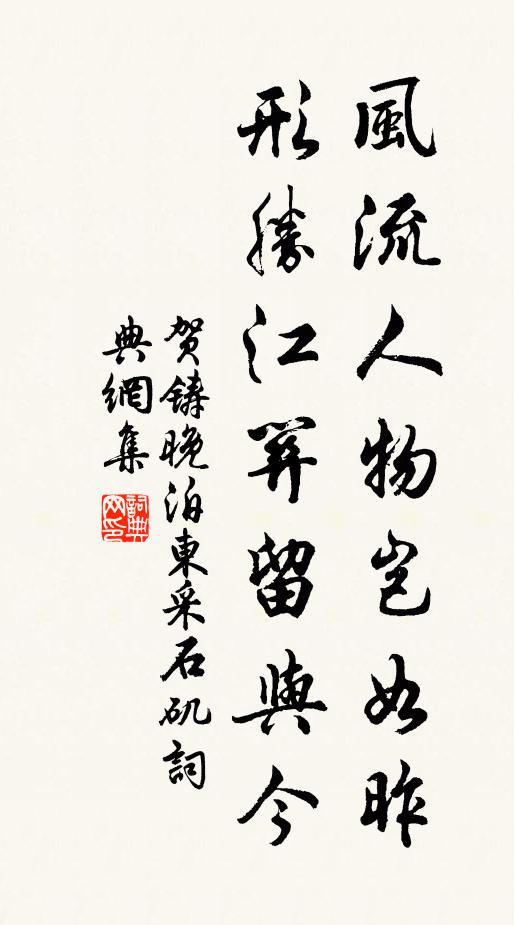 風流人物豈如昨
形勝江關留與今
賀鑄晚泊東采石矶詞
典網集
詞典
网印